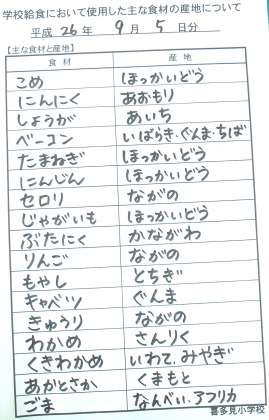 学校給食において使用した主な食材の産地について
平成 26 年 9 月 5 日分
【主な食材と産地】
食材 産地
こめ ほっかいどう
にんにく あおもり
しょうが あいち
ベーコン いばらき・ぐんま・ちば
たまねぎ ほっかいどう
にんじん ほっかいどう
セロリ ながの
じゃがいも ほっかいどう
ぶたにく かながわ
りんご ながの
もやし とちぎ
キャベツ ぐんま
きゅうり ながの
わかめ さんりく
くきわかめ いわて、みやぎ
あかとさか くまもと
ごま なんべい、アフリカ
喜多見小学校